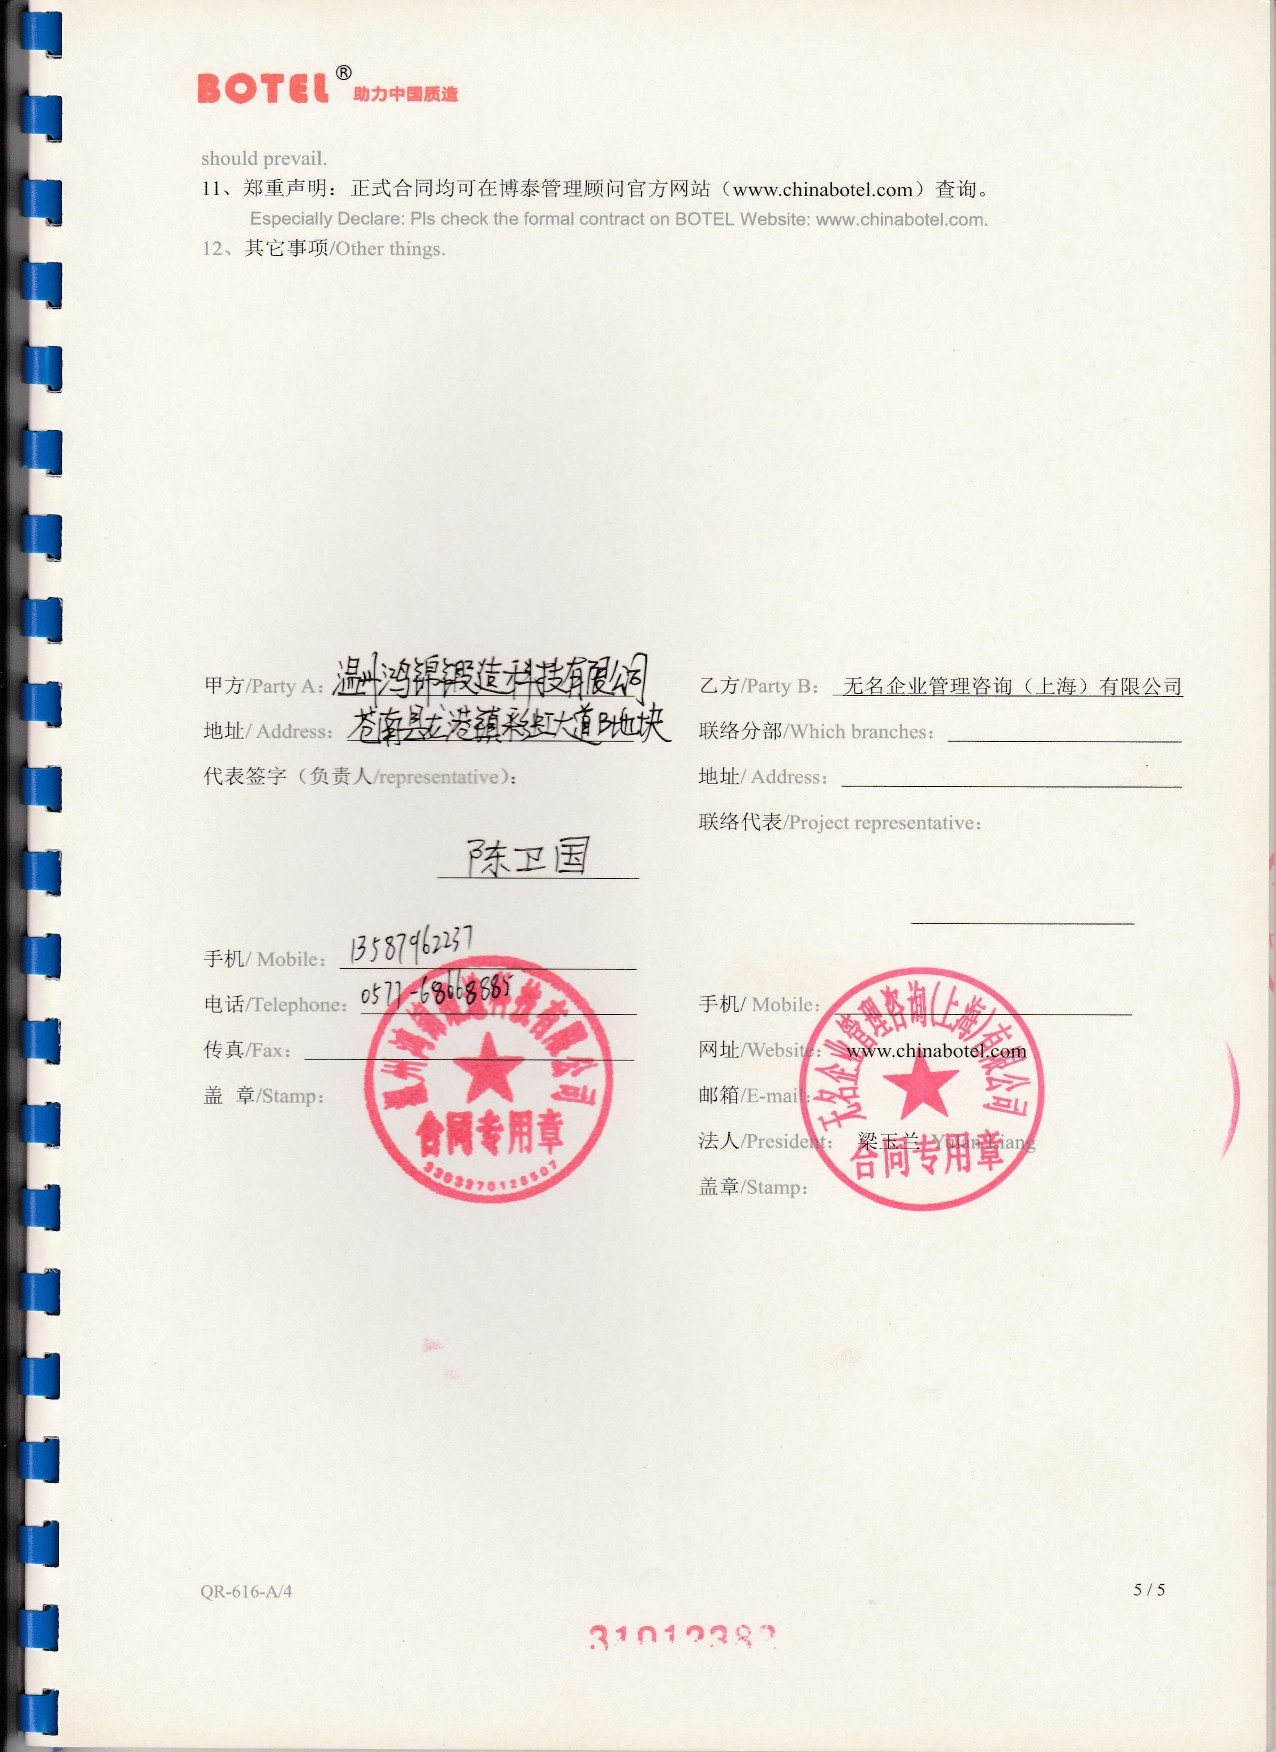 BOTEL® 助力中国质造
should prevail.
11、郑重声明：正式合同均可在博泰管理顾问官方网站（www.chinabotel.com）查询。
Especially Declare: Pls check the formal contract on BOTEL Website: www.chinabotel.com.
12、其它事项/Other things.
甲方/Party A：温州鸿锦锻造科技有限公司
地址/ Address：苍南县龙港镇彩虹大道B地块
代表签字（负责人/representative）：
陈卫国
手机/ Mobile：13587962237
电话/Telephone：0577-68668885
传真/Fax：
盖 章/Stamp：
温州鸿锦锻造科技有限公司
合同专用章
乙方/Party B： 无名企业管理咨询（上海）有限公司
联络分部/Which branches：
地址/ Address：
联络代表/Project representative：
手机/ Mobile：
网址/Website： www.chinabotel.com
邮箱/E-mail：
法人/President： 梁玉兰 Yulan Liang
盖章/Stamp：
无名企业管理咨询(上海)有限公司
合同专用章
QR-616-A/4
5 / 5